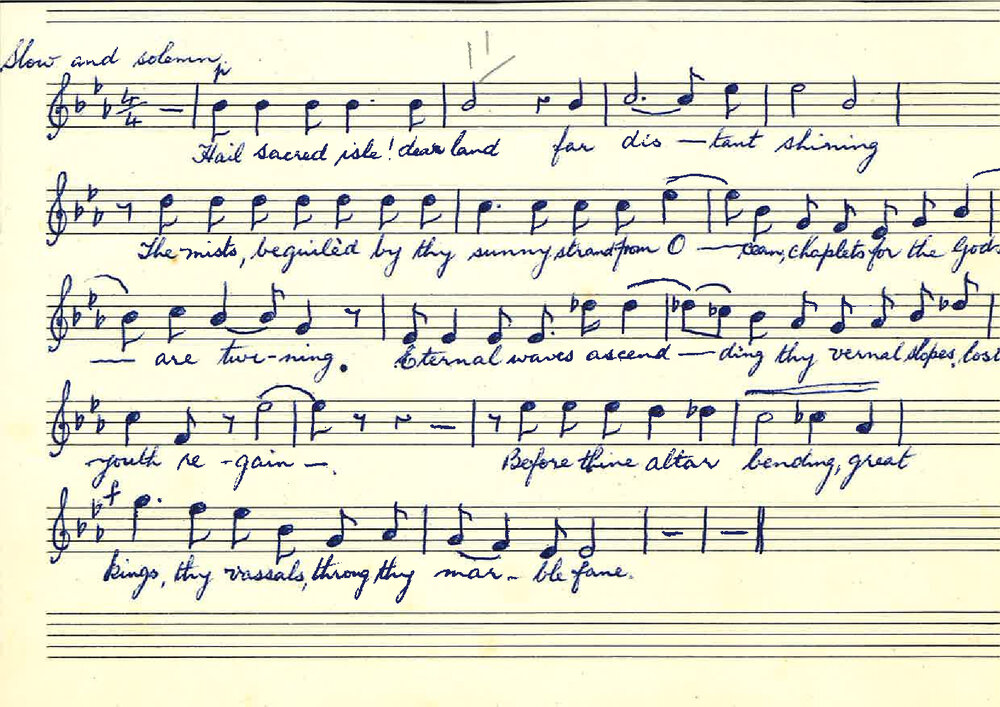 Slow and solemn.
p
4/4
Hail sacred isle! dear land far dis – tant shining
The mists, beguilèd by thy sunny strand from O – cean, chaplets for the Gods
– are twi-ning. Eternal waves ascend – ding thy vernal slopes, lost
youth re-gain –. Before thine altar bending, great
f
kings, thy vassals, throng thy mar – ble fane.